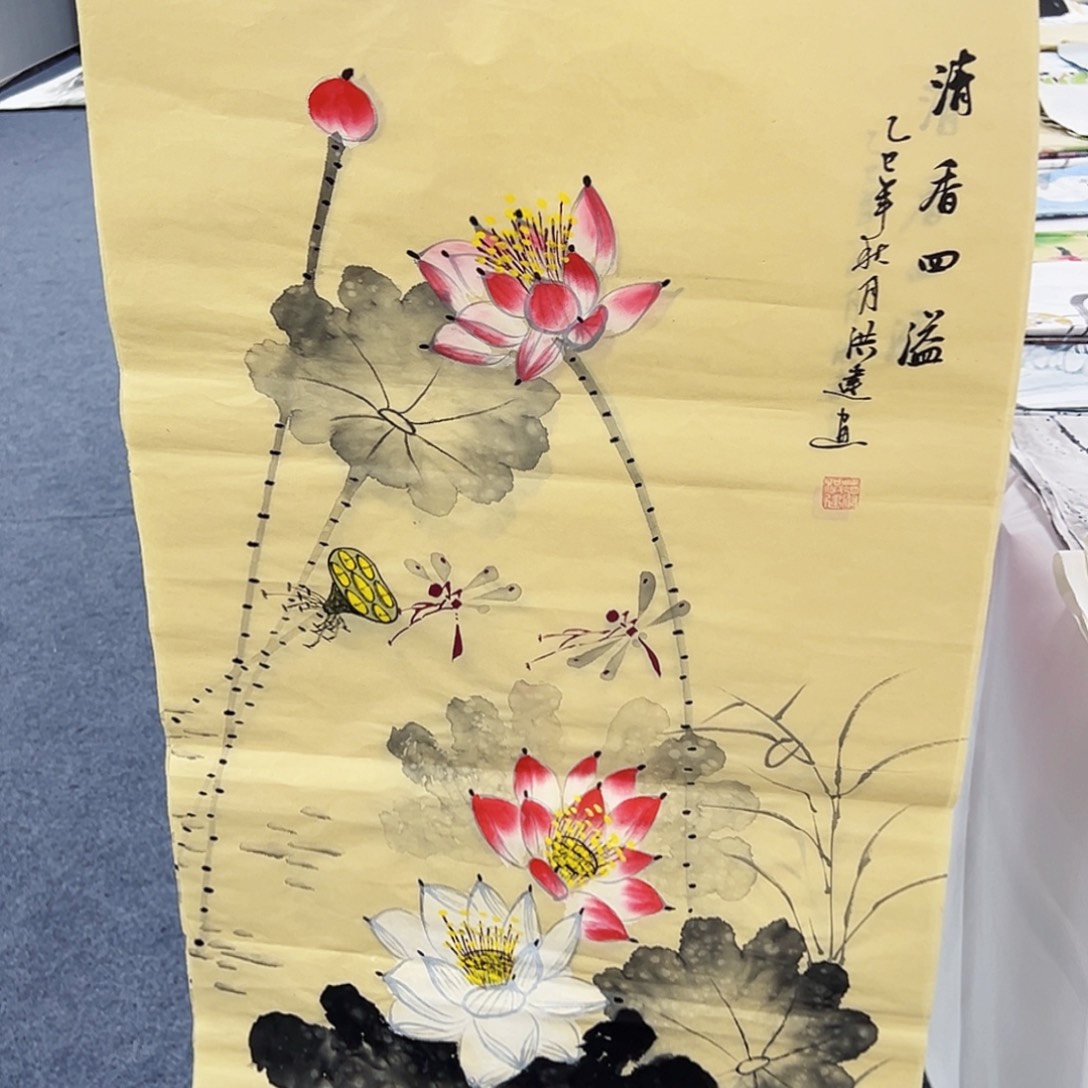 清香四溢
乙巳年秋月洪建画